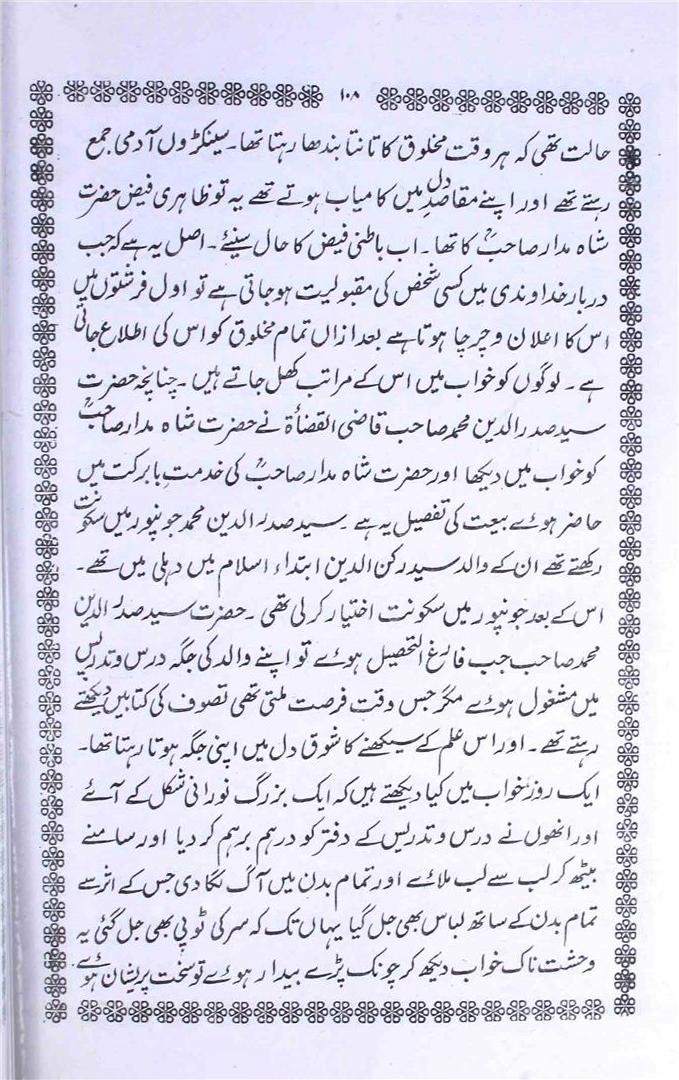 ۱۰۸
حالت تھی کہ ہر وقت مخلوق کا تانتا بندھا رہتا تھا۔ سینکڑوں آدمی جمع
رہتے تھے اور اپنے مقاصدِ دل میں کامیاب ہوتے تھے یہ تو ظاہری فیض حضرت
شاہ مدار صاحبؒ کا تھا۔ اب باطنی فیض کا حال سنیئے۔ اصل یہ ہے کہ جب
دربار خداوندی میں کسی شخص کی مقبولیت ہو جاتی ہے تو اول فرشتوں میں
اس کا اعلان و چرچا ہوتا ہے بعد ازاں تمام مخلوق کو اس کی اطلاع جاتی
ہے۔ لوگوں کو خواب میں اس کے مراتب کھل جاتے ہیں۔ چنانچہ حضرت
سید صدر الدین محمد صاحب قاضی القضاۃ نے حضرت شاہ مدار صاحبؒ
کو خواب میں دیکھا اور حضرت شاہ مدار صاحبؒ کی خدمتِ بابرکت میں
حاضر ہوئے بیعت کی تفصیل یہ ہے۔ سید صدر الدین محمد جونپور میں سکونت
رکھتے تھے ان کے والد سید رکن الدین ابتداء اسلام میں دہلی میں تھے۔
اس کے بعد جونپور میں سکونت اختیار کر لی تھی۔ حضرت سید صدر الدین
محمد صاحب جب فارغ التحصیل ہوئے تو اپنے والد کی جگہ درس و تدریس
میں مشغول ہوئے مگر جس وقت فرصت ملتی تھی تصوف کی کتابیں دیکھتے
رہتے تھے۔ اور اس علم کے سیکھنے کا شوق دل میں اپنی جگہ ہوتا رہتا تھا۔
ایک روز خواب میں کیا دیکھتے ہیں کہ ایک بزرگ نورانی شکل کے آئے
اور انھوں نے درس و تدریس کے دفتر کو درہم برہم کر دیا اور سامنے
بیٹھ کر لب سے لب ملائے اور تمام بدن میں آگ لگا دی جس کے اثر سے
تمام بدن کے ساتھ لباس بھی جل گیا یہاں تک کہ سر کی ٹوپی بھی جل گئی یہ
وحشت ناک خواب دیکھ کر چونک پڑے بیدار ہوئے تو سخت پریشان ہوئے